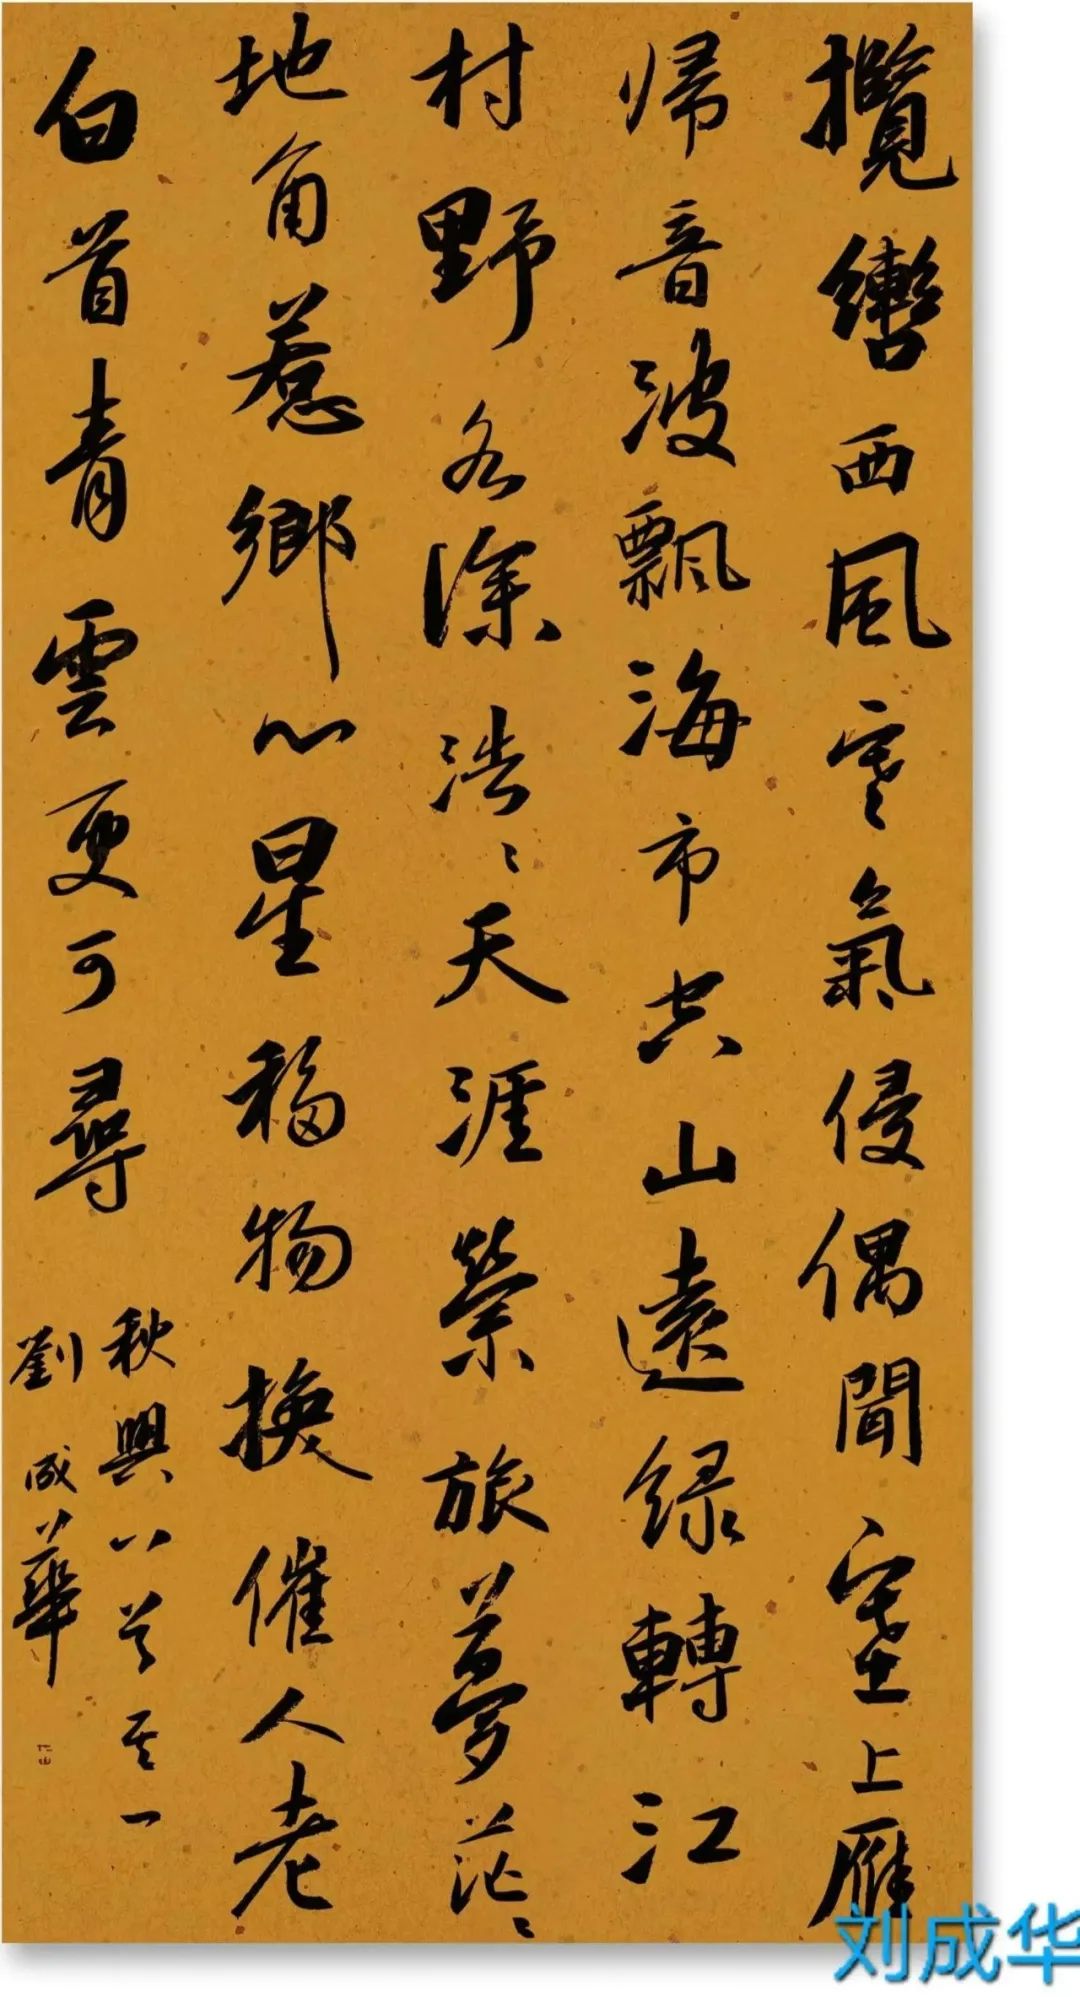 攬轡西風寒氣侵偶聞塞上雁
歸音波飄海市空山遠緑轉江
村野色深浩〻天涯縈旅夢茫〻
地角惹鄉心星移物換催人老
白首青雲更可尋
秋興八首其一
劉成華
刘成华